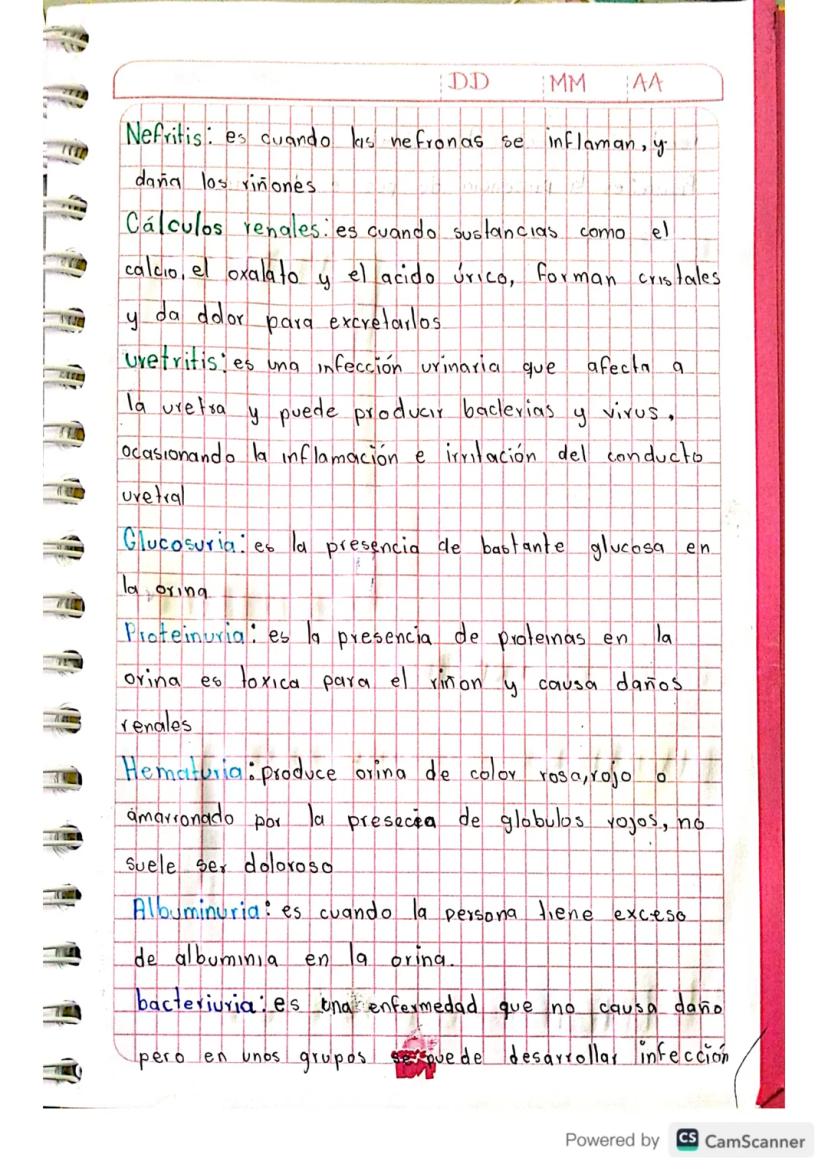 DD MM AA
Nefritis: es cuando las nefronas se inflaman, y
daña los riñones
Cálculos renales: es cuando sustancias como el
calcio, el oxalato y el acido úrico, forman cristales
y da dolor para excretarlos
uretritis: es una infección urinaria que afecta a
la uretra y puede producir bacterias y virus,
ocasionando la inflamación e irritación del conducto
uretral
Glucosuria: es la presencia de bastante glucosa en
la orina
Proteinuria: es la presencia de proteinas en la
orina es toxica para el riñon y causa daños
renales
Hematuria: produce orina de color rosa, rojo o
amarronado por la presecia de globulos rojos, no
suele ser doloroso
Albuminuria: es cuando la persona tiene exceso
de albuminia en la orina.
bacteriuria: es una enfermedad que no causa daño
pero en unos grupos se puede desarrollar infección
Powered by CS CamScanner